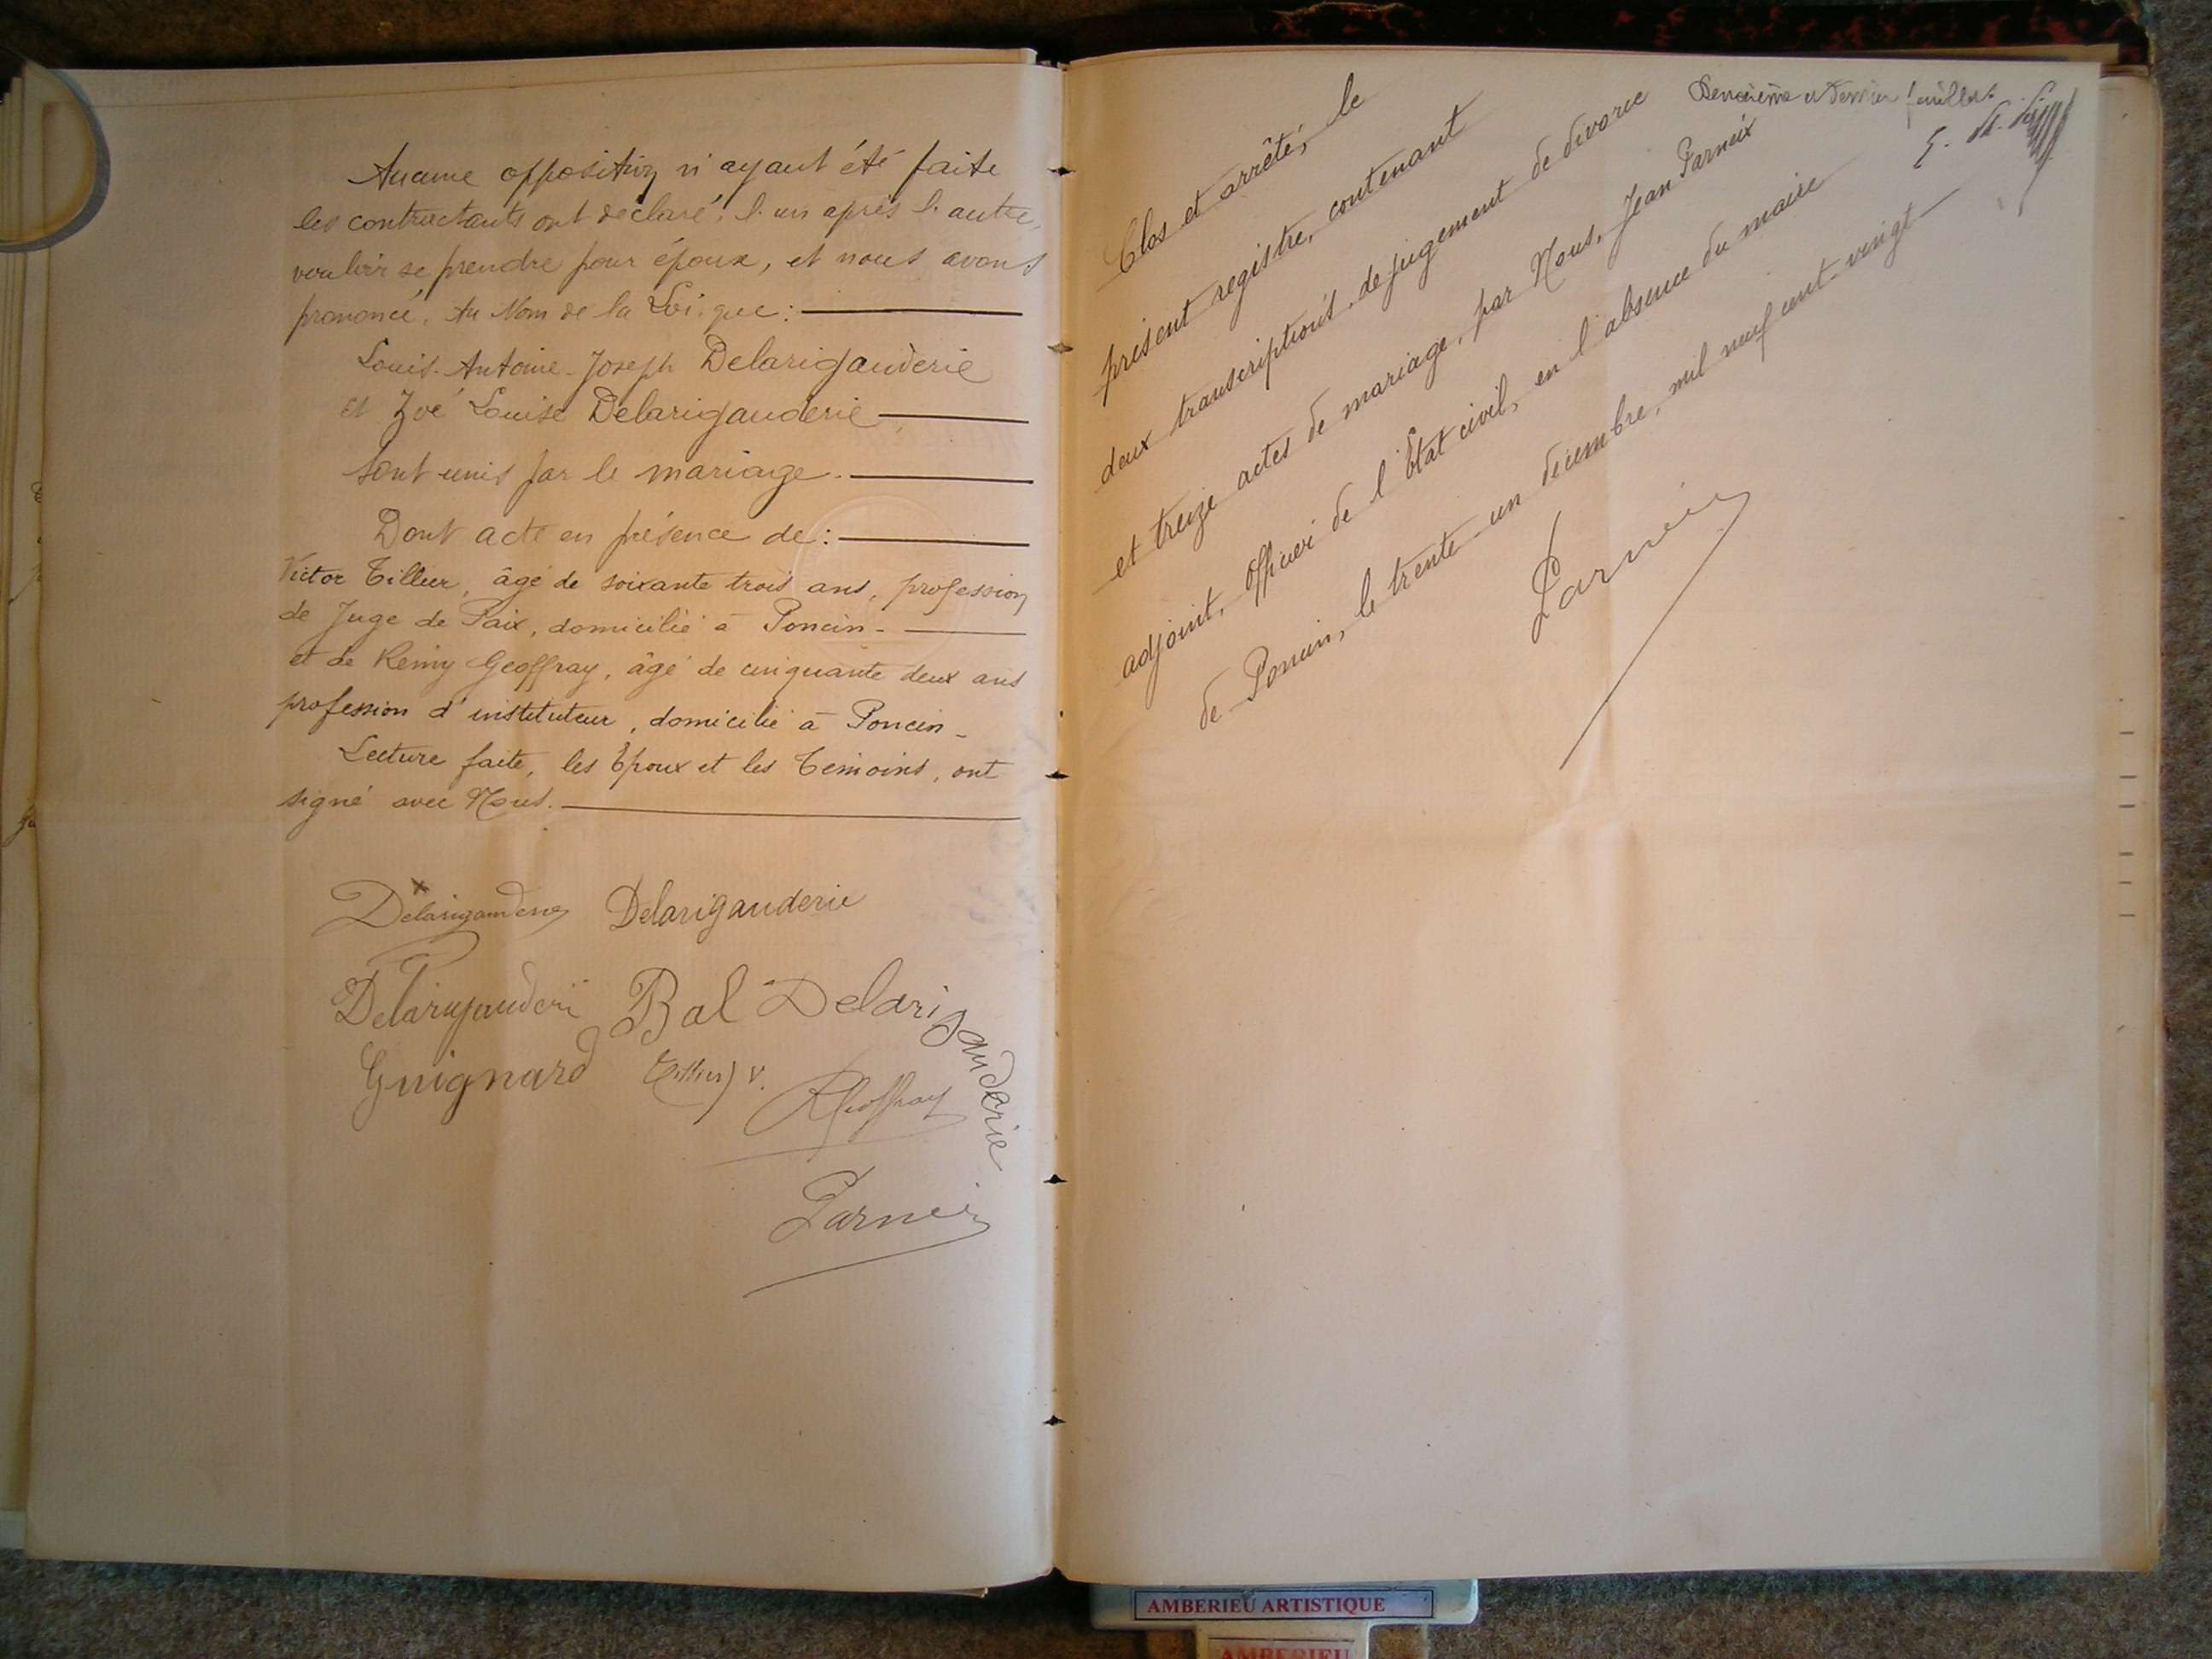 Aucune opposition n'ayant été faite
les contractants ont déclaré, l'un après l'autre,
vouloir se prendre pour époux, et nous avons
prononcé, Au Nom de la Loi, que :
Louis-Antoine-Joseph Delarigauderie
et Zoé Louise Delarigauderie,
sont unis par le mariage.
Dont acte en présence de :
Victor Tillier, âgé de soixante trois ans, profession
de Juge de Paix, domicilié à Poncin -
et de Rémy Geoffray, âgé de cinquante deux ans
profession d'instituteur, domicilié à Poncin -
Lecture faite, les Époux et les Témoins, ont
signé avec Nous.
Delarigauderie Delarigauderie
Delarigauderie Bal Delarigauderie
Guignard Tillier V.
RGeoffray
Parneix
Deuxième et dernier feuillet.
Clos et arrêté, le
présent registre, contenant
deux transcriptions de jugement de divorce
et treize actes de mariage, par Nous, Jean Parneix
adjoint, officier de l'État civil, en l'absence du maire
de Poncin, le trente-un décembre, mil neuf cent-vingt-
Parneix
AMBERIEU ARTISTIQUE
AMBERIEU